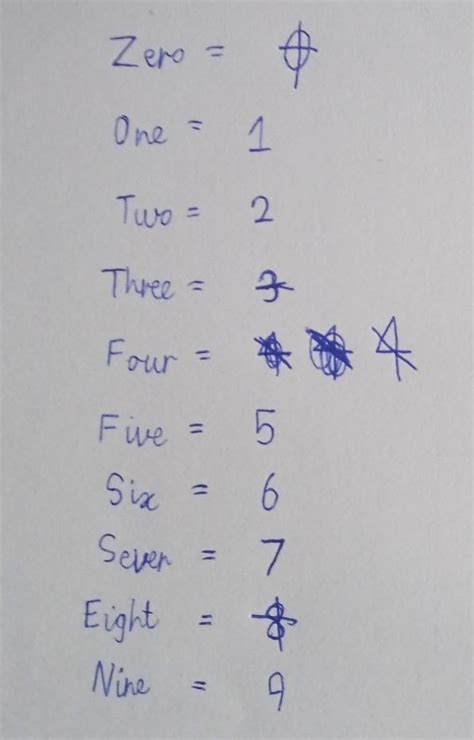 Zero = 0
One = 1
Two = 2
Three = 3
Four = 4
Five = 5
Six = 6
Seven = 7
Eight = 8
Nine = 9